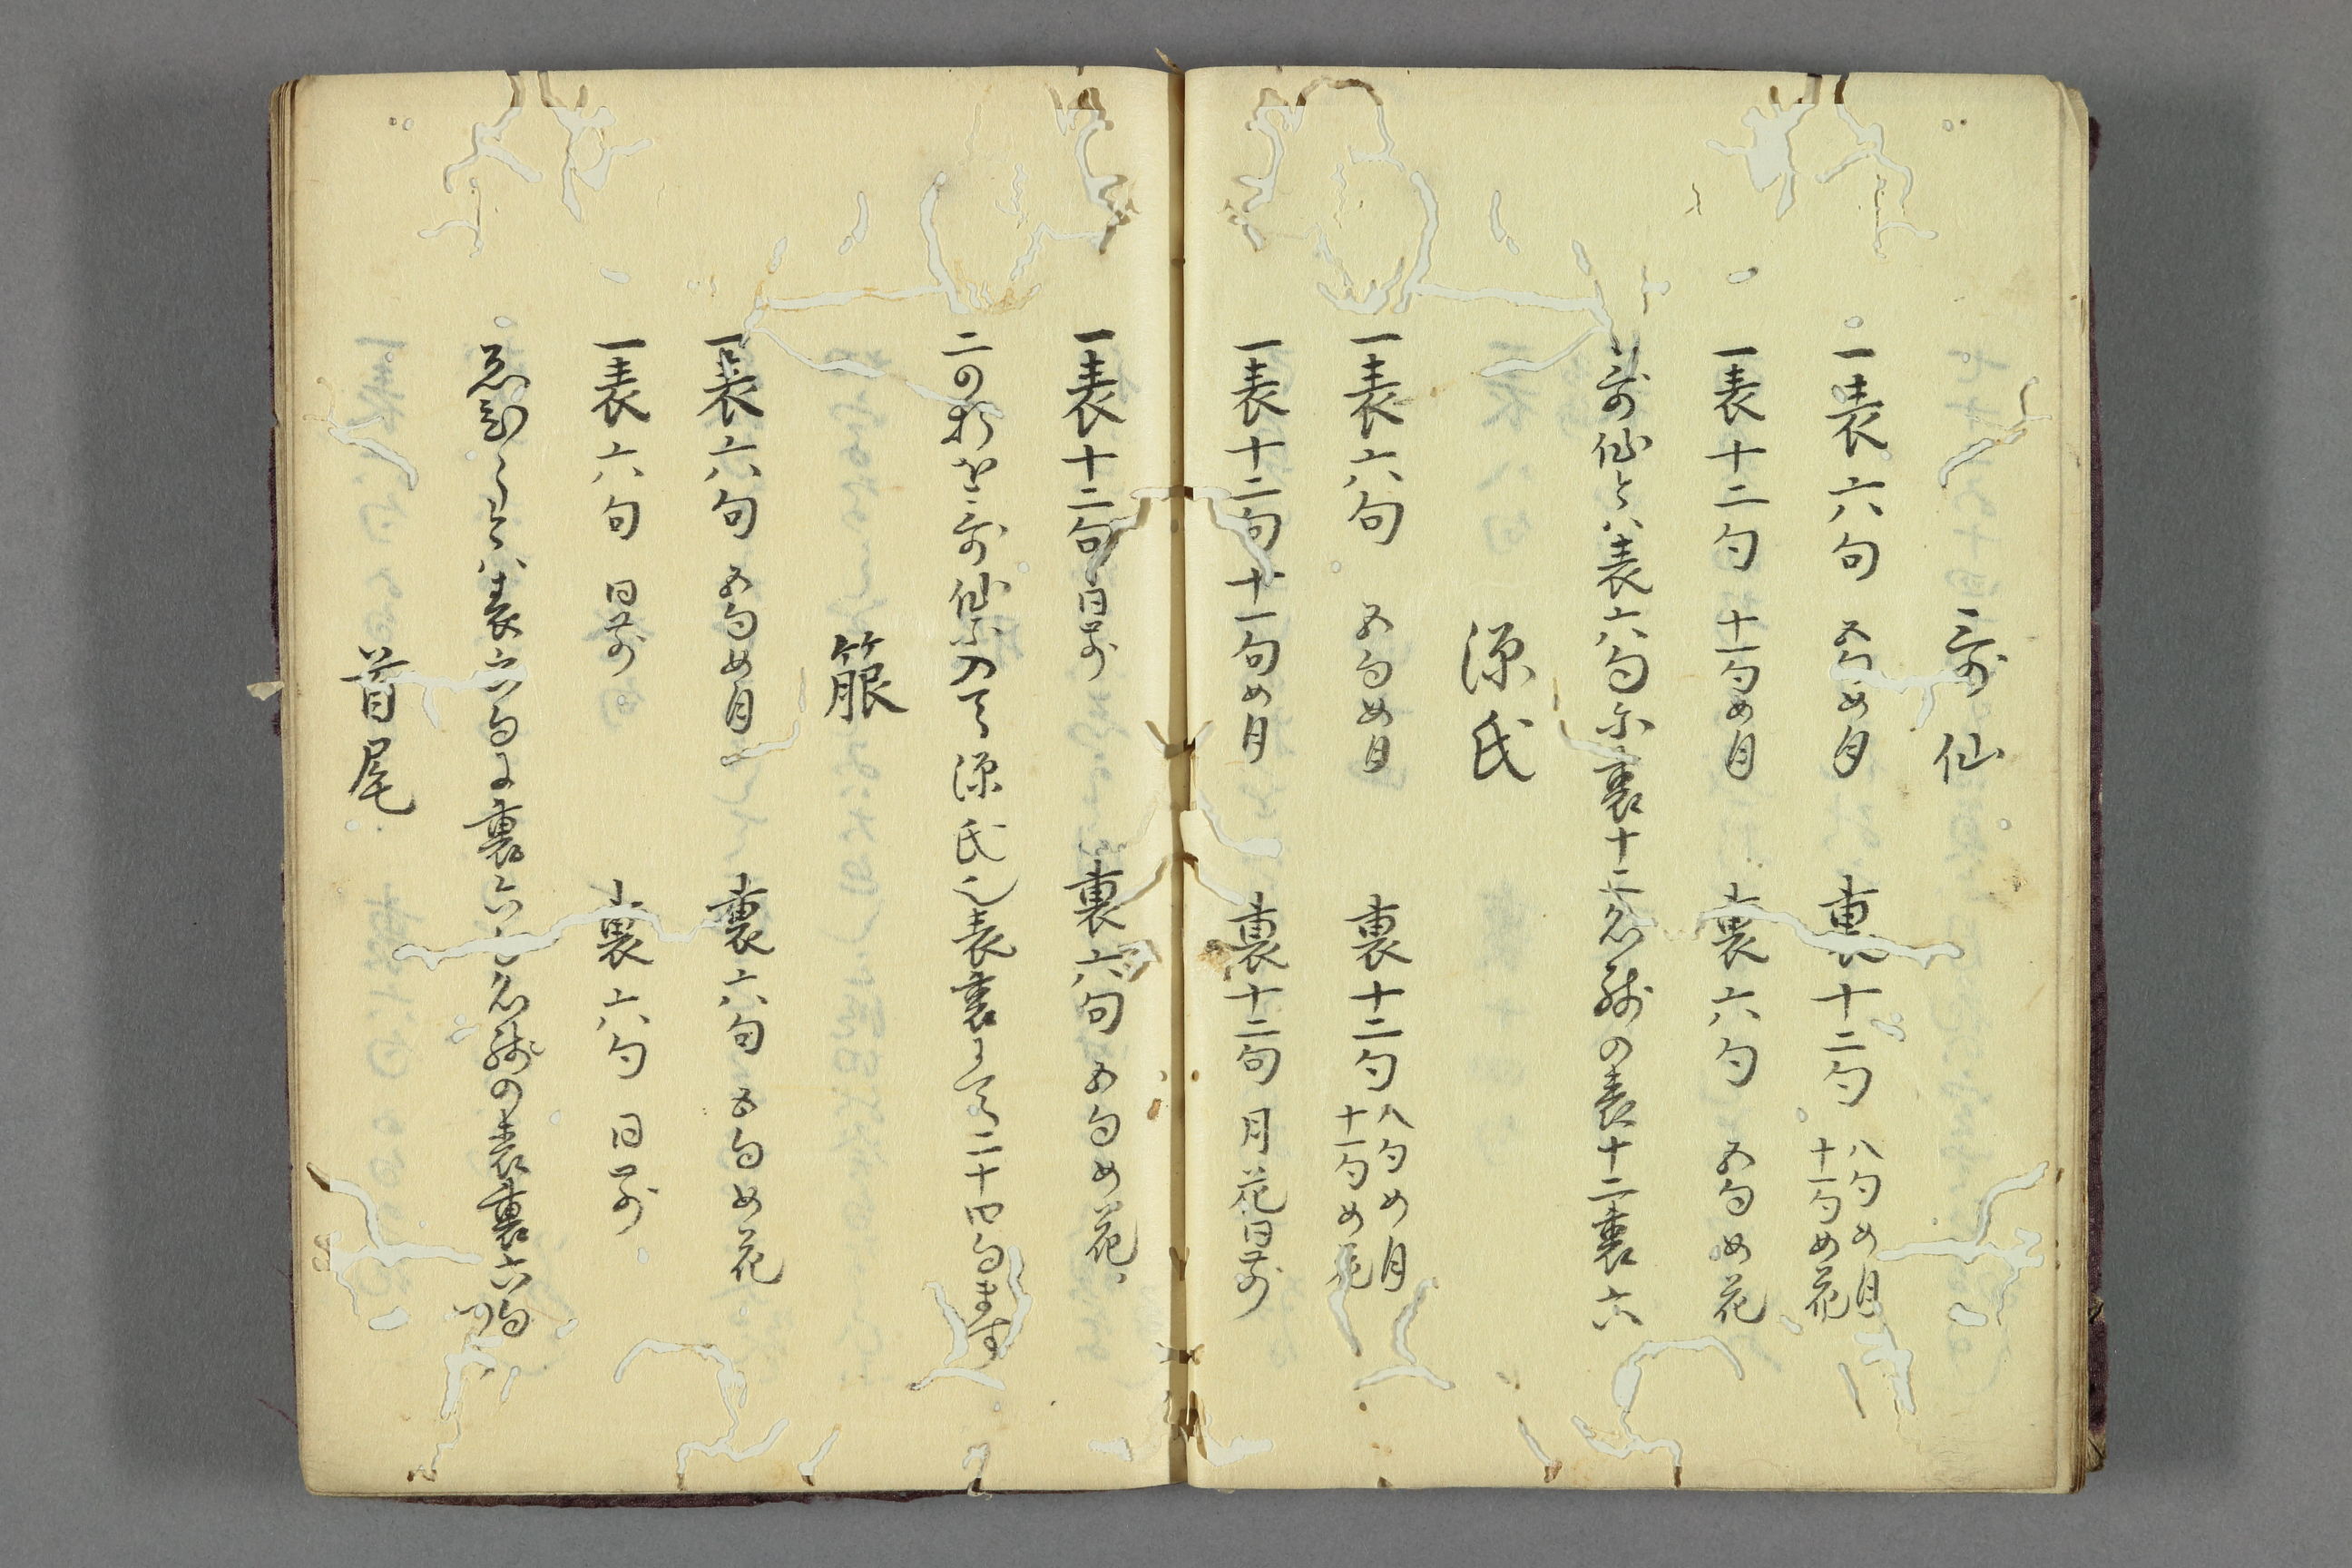 哥仙
一表六句 五句め月 裏十二句 八句め月 十一句め花
一表十二句 十一句め月 裏六句 五句め花
哥仙とハ表六句に裏十二名残の表十二裏六
源氏
一表六句 五句め月 裏十二句 八句め月 十一句め花
一表十二句 十一句め月 裏十二句 月花同前
一表十二句 同前 裏六句 五句め花
二の折を哥仙に入て源氏之表裏にて二十四句ます
箙
一表六句 五句め月 裏六句 五句め花
一表六句 同前 裏六句 同前
ハ表六句に裏六句名残の表裏六句
首尾